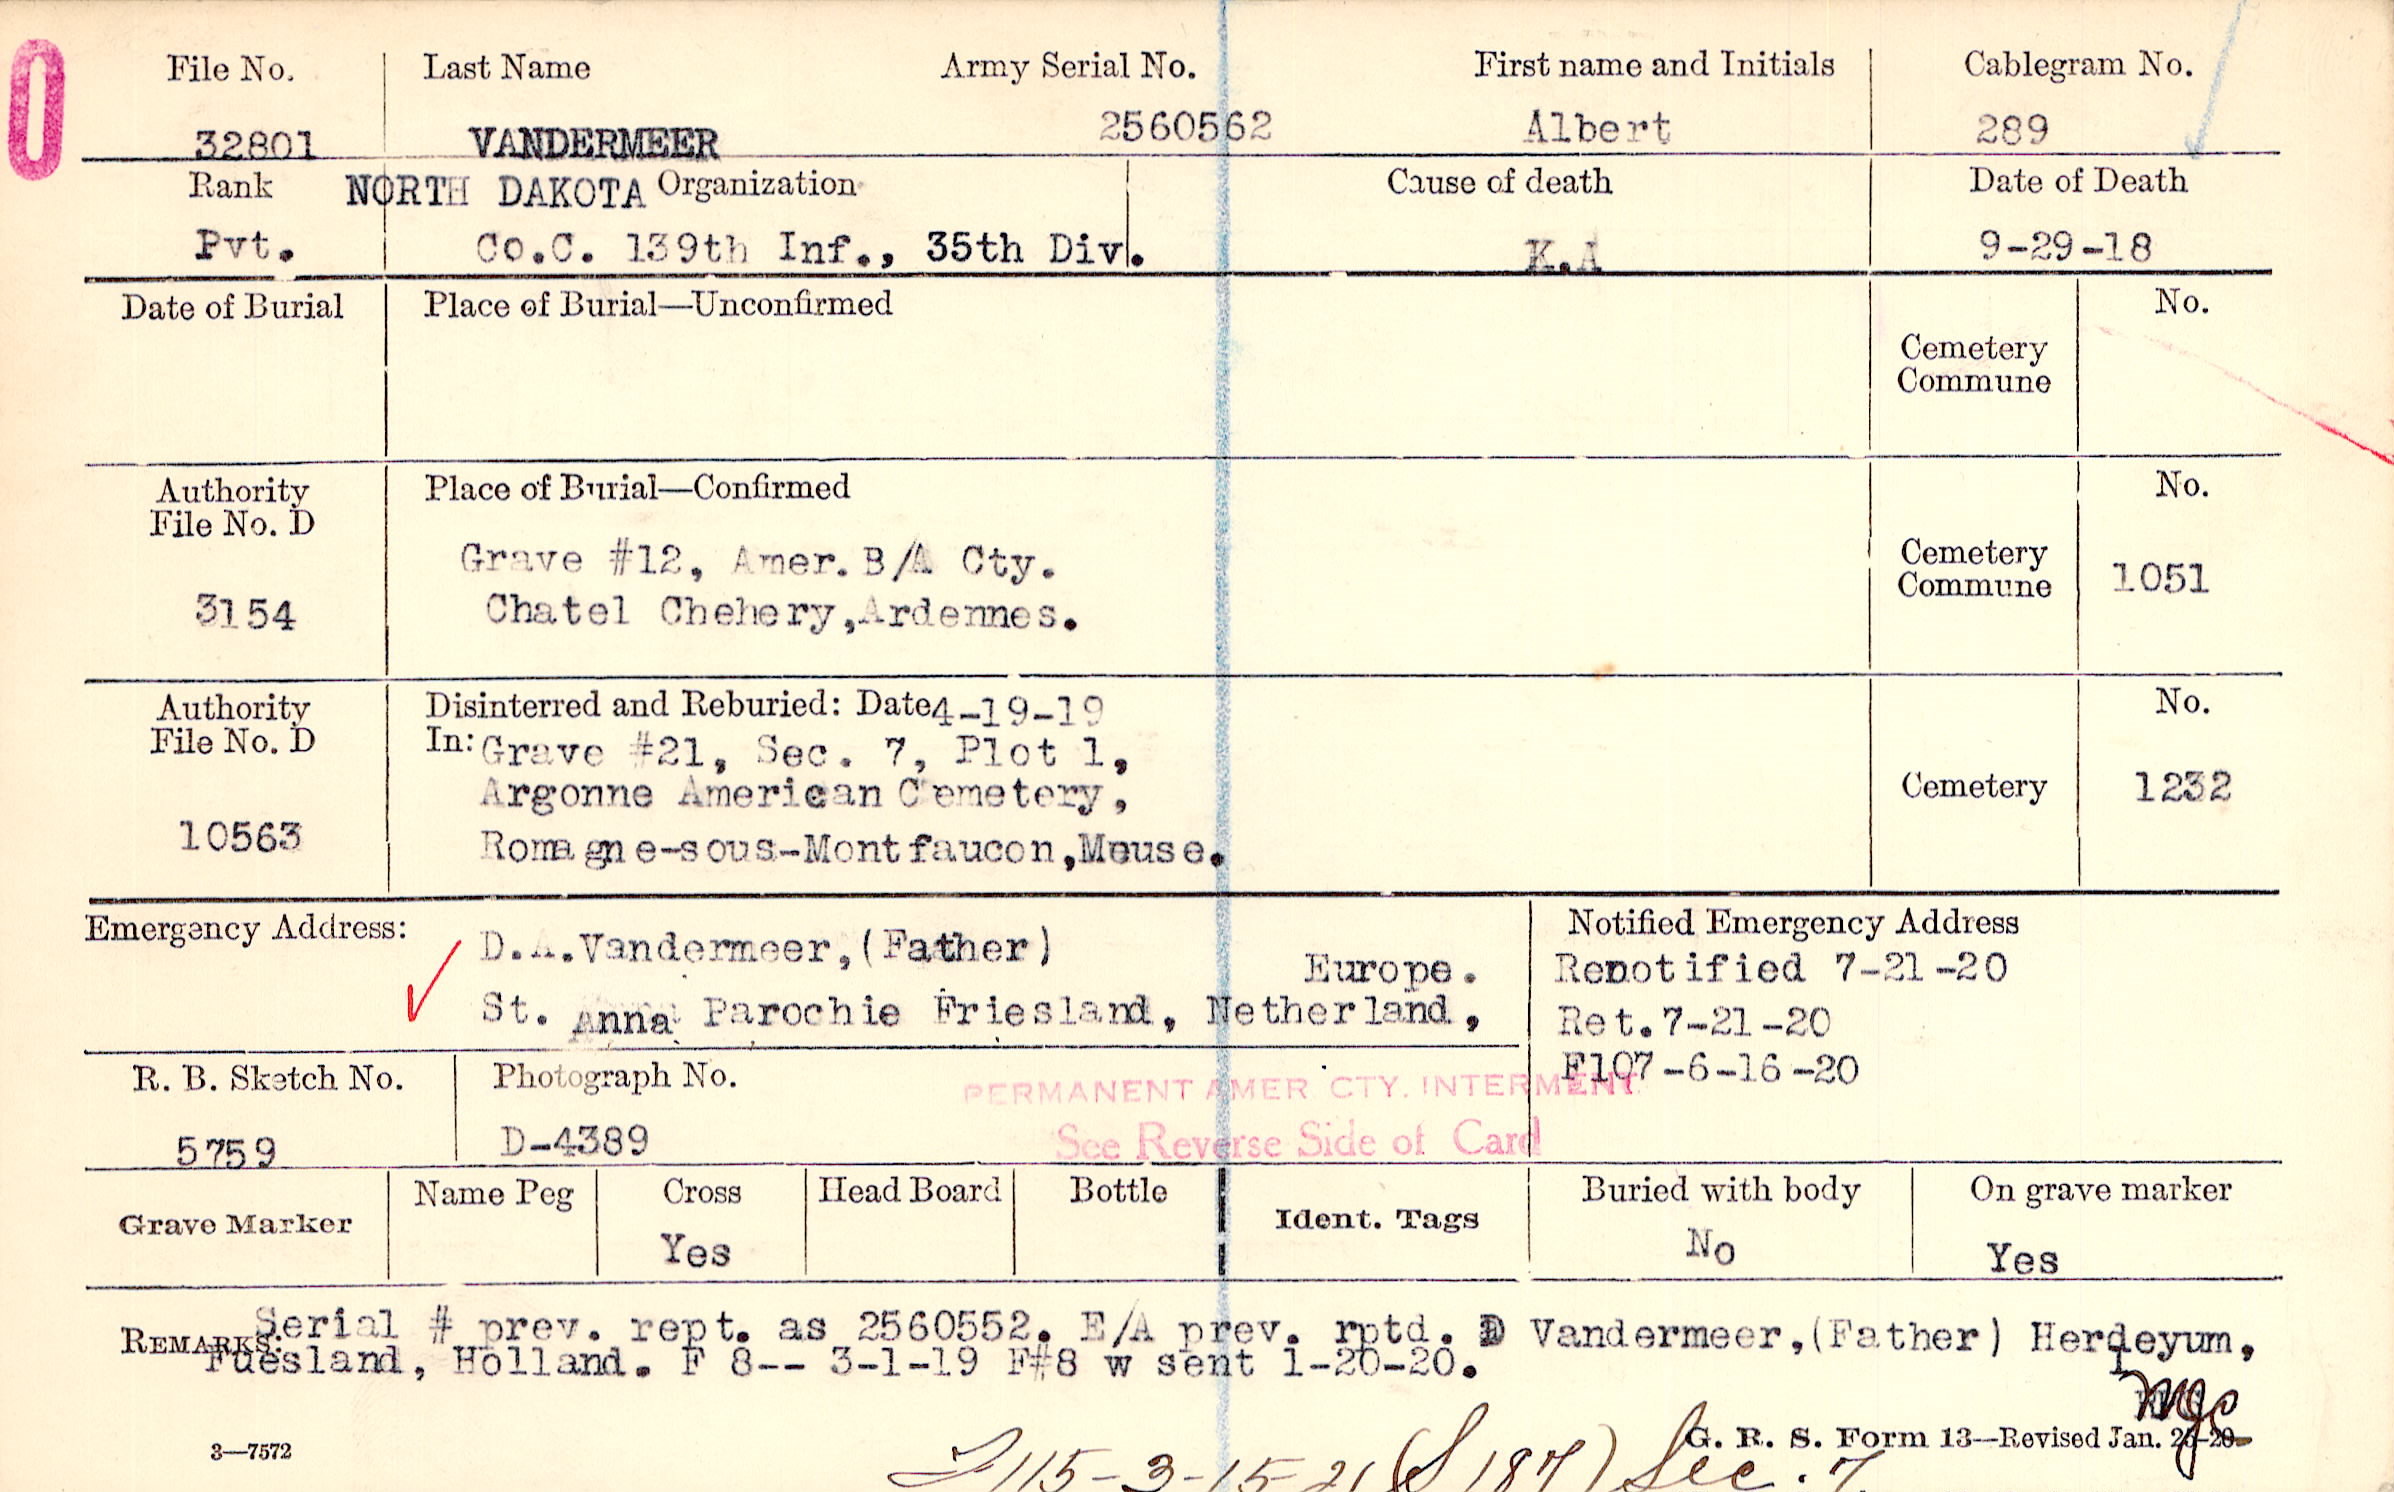 0
File No. Last Name Army Serial No. First name and Initials Cablegram No.
32801 VANDERMEER 2560562 Albert 289
Rank NORTH DAKOTA Organization Cause of death Date of Death
Pvt. Co.C. 139th Inf., 35th Div. K.A 9-29-18
Date of Burial Place of Burial—Unconfirmed No.
Cemetery
Commune
Authority Place of Burial—Confirmed No.
File No. D
Grave #12, Amer. B/A Cty. Cemetery
Commune 1051
3154 Chatel Chehery,Ardennes.
Authority Disinterred and Reburied: Date 4-19-19 No.
File No. D In: Grave #21, Sec. 7, Plot 1,
Argonne American Cemetery, Cemetery 1232
10563 Romagne-sous-Montfaucon,Meuse.
Emergency Address: D.A.Vandermeer,(Father) Notified Emergency Address
Europe. Renotified 7-21-20
St. Anna Parochie Friesland, Netherland, Ret.7-21-20
F107-6-16-20
R. B. Sketch No. Photograph No. PERMANENT AMER CTY. INTERMENT
5759 D-4389 See Reverse Side of Card
Grave Marker Name Peg Cross Head Board Bottle Ident. Tags Buried with body On grave marker
Yes No Yes
REMARKS: Serial # prev. rept. as 2560552. E/A prev. rptd. D Vandermeer,(Father) Herdeyum,
Fuesland, Holland. F 8-- 3-1-19 F#8 w sent 1-20-20.
3—7572 G. R. S. Form 13—Revised Jan.
115-3-15-21 (S 187) Sec. 7